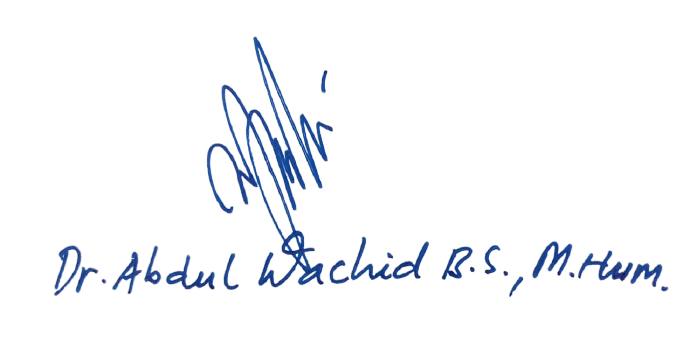 Dr. Abdul Wachid B.S., M.Hum.